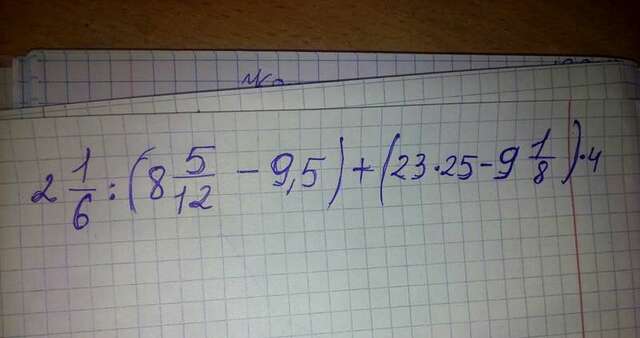 2 1/6 : (8 5/12 - 9,5) + (23 · 25 - 9 1/8) · 4